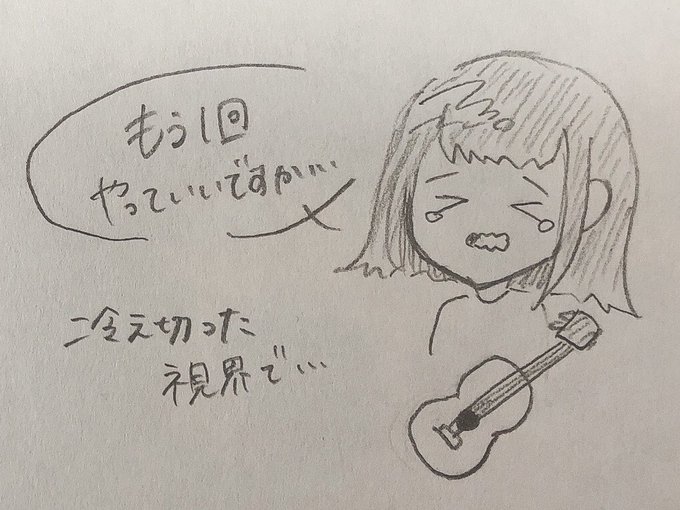 もう1回
やっていいですか…
冷え切った
視界で…